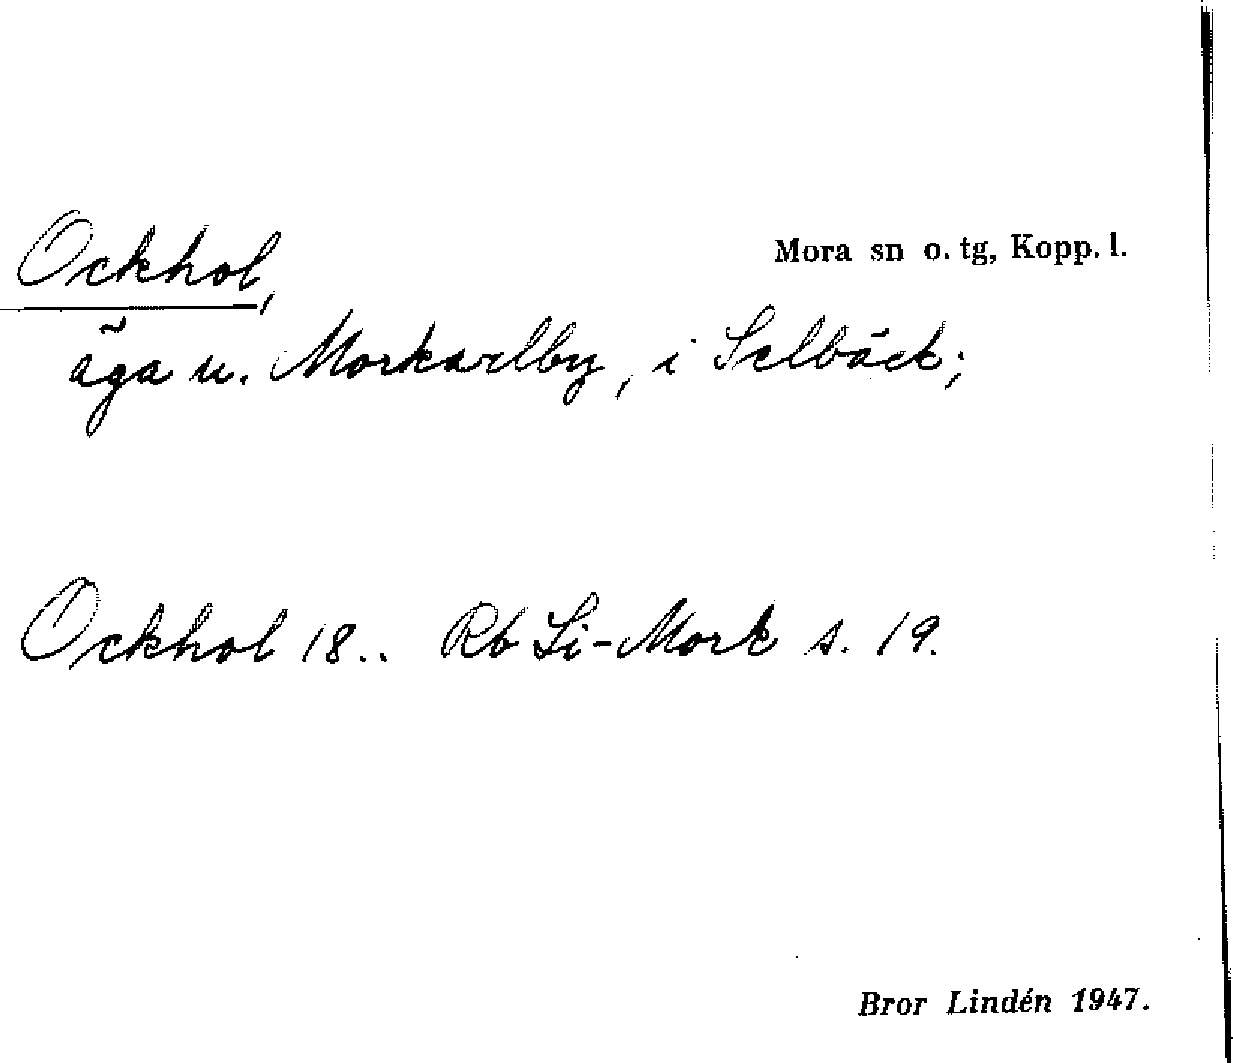 Ockhol,
Mora sn o. tg, Kopp. l.
äga u. Morkarlby, i Selbäck;
Ockhol 18.. Rb Li-Mork s. 19.
Bror Lindén 1947.